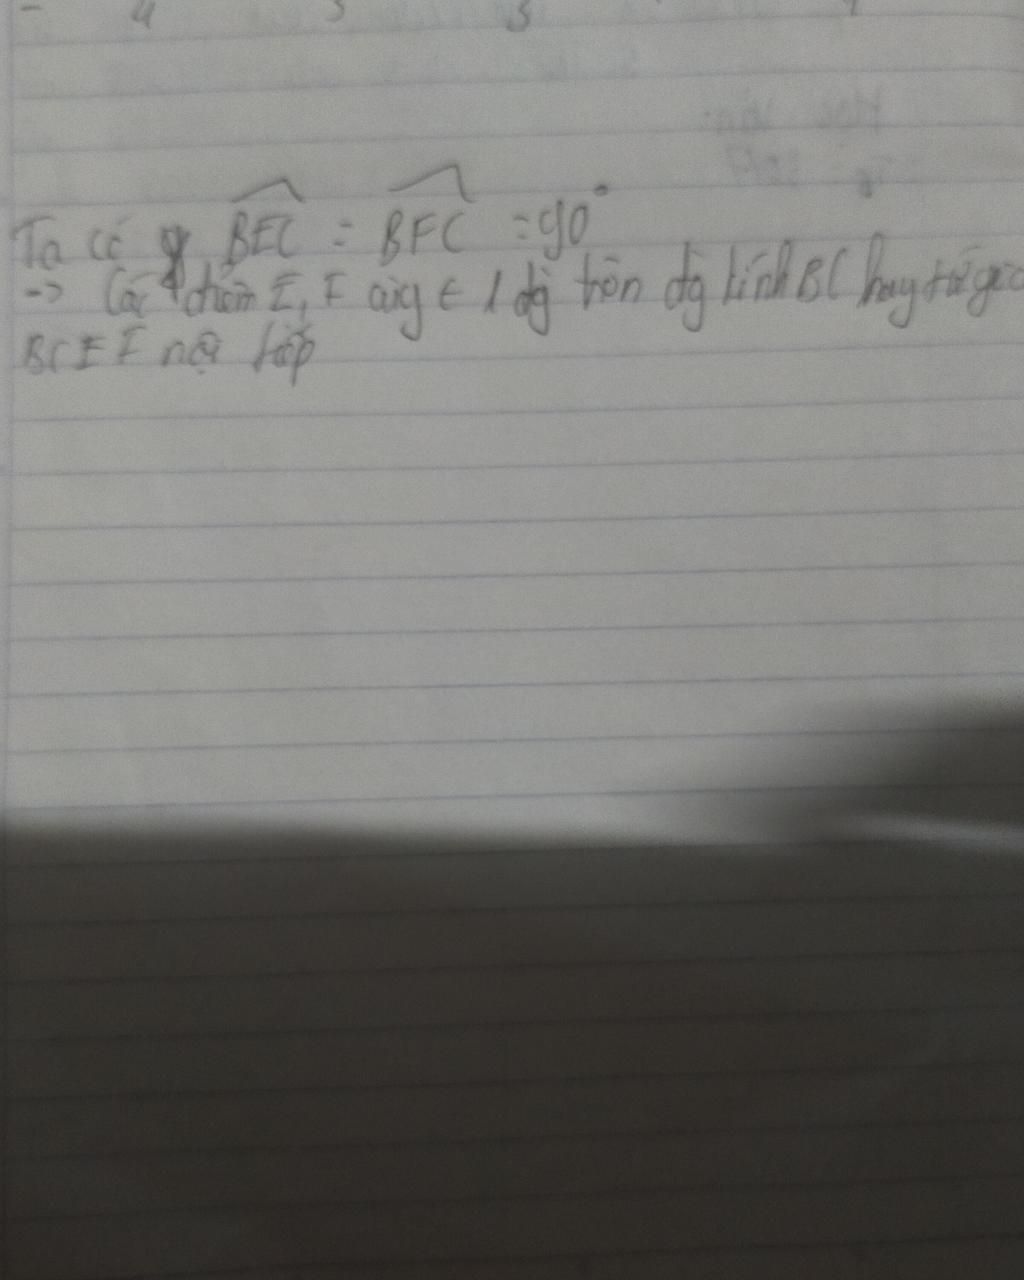 Ta có BEC = BFC = 90°
-> Các điểm E, F cùng ∈ 1 đg tròn đg kính BC hay tứ giác
BCEF nội tiếp